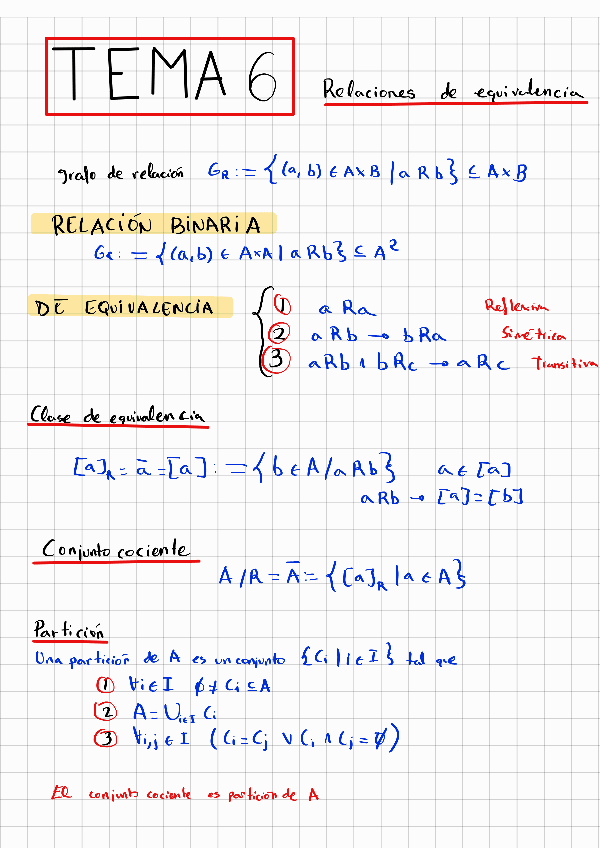 TEMA 6
Relaciones de equivalencia
grafo de relación G_R := {(a, b) ∈ A×B | a R b} ⊆ A×B
RELACIÓN BINARIA
G_R := {(a,b) ∈ A×A | a R b} ⊆ A²
DE EQUIVALENCIA
① a Ra Reflexiva
② aRb → bRa Simétrica
③ aRb ∧ bRc → aRc Transitiva
Clase de equivalencia
[a]_R = ā = [a] := {b ∈ A / aRb} a ∈ [a]
aRb → [a] = [b]
Conjunto cociente
A/R = Ā := {[a]_R | a ∈ A}
Partición
Una partición de A es un conjunto {Ci | i ∈ I} tal que
① ∀i ∈ I ∅ ≠ Ci ⊆ A
② A = ∪_{i∈I} Ci
③ ∀i,j ∈ I (Ci = Cj ∨ Ci ∧ Cj = ∅)
El conjunto cociente es partición de A